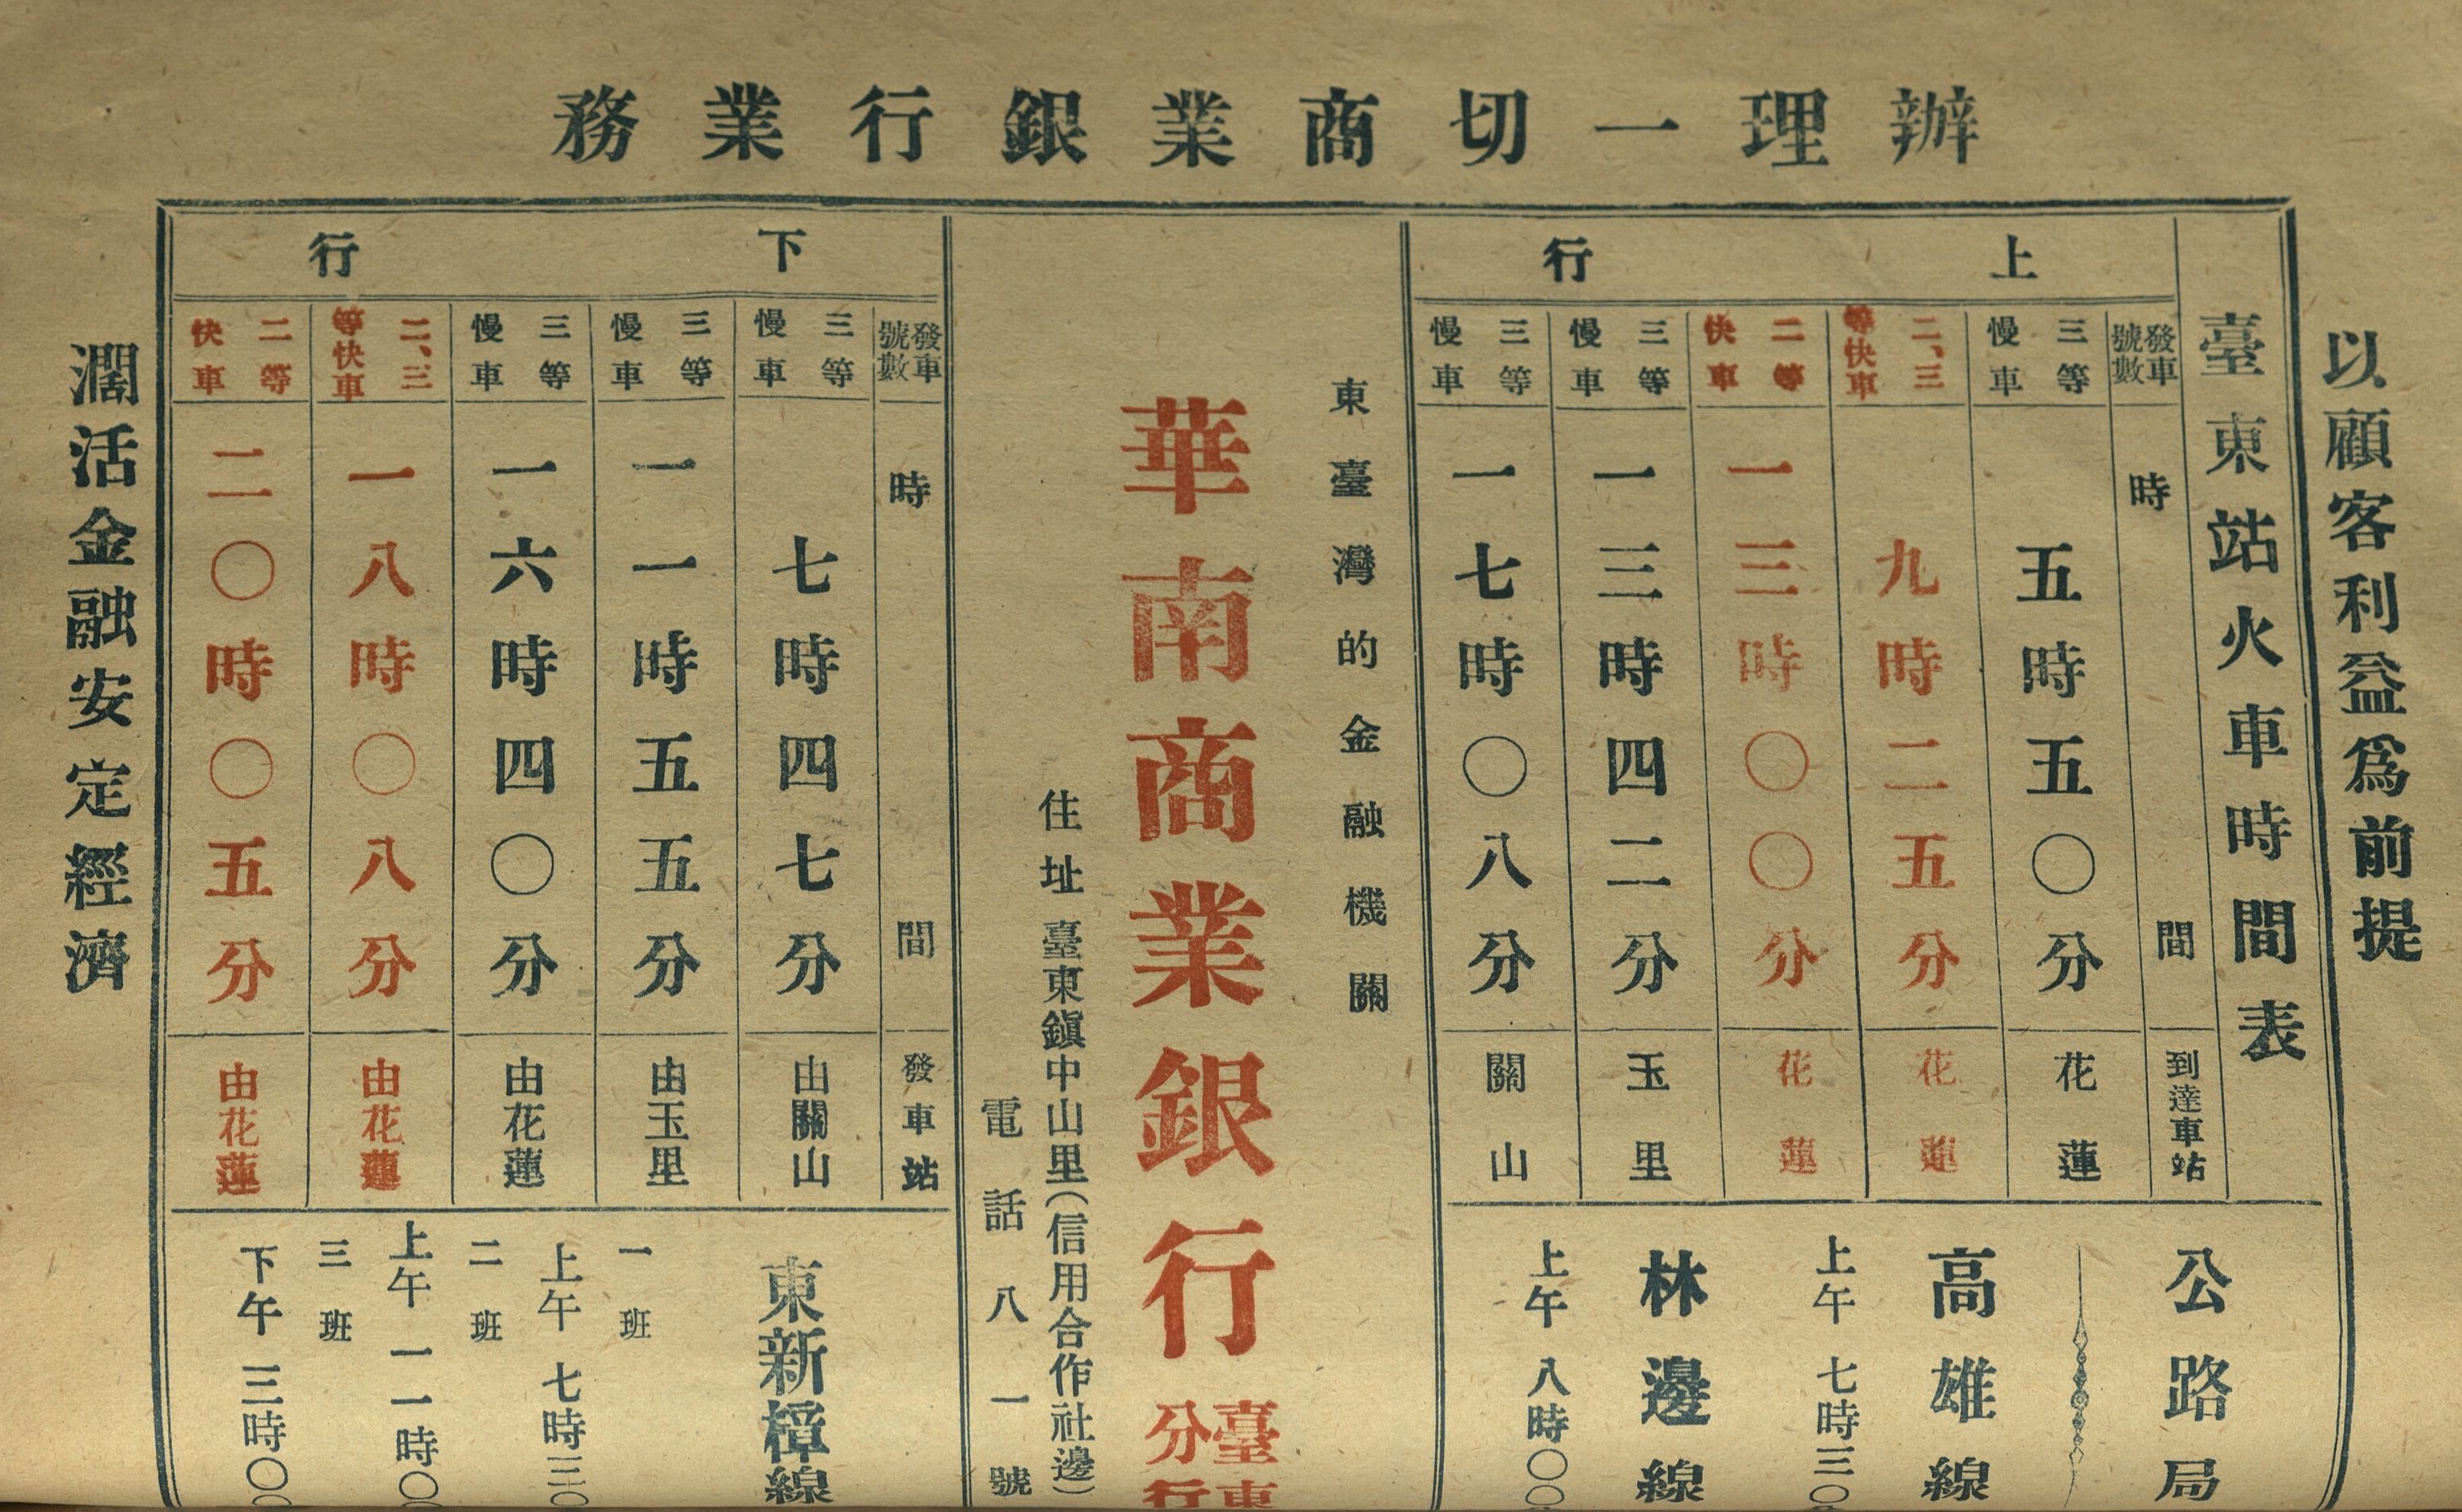 辦理一切商業銀行業務
以顧客利益爲前提
臺東站火車時間表
上行
發車號數
時間
到達車站
三等慢車
五時五〇分
花蓮
二、三等快車
九時二五分
花蓮
二等快車
一三時〇〇分
花蓮
三等慢車
一三時四二分
玉里
三等慢車
一七時〇八分
關山
公路局
高雄線
上午七時三〇
林邊線
上午八時〇〇
東臺灣的金融機關
華南商業銀行臺東分行
住址臺東鎭中山里(信用合作社邊)
電話八一號
下行
發車號數
時間
發車站
三等慢車
七時四七分
由關山
三等慢車
一一時五五分
由玉里
三等慢車
一六時四〇分
由花蓮
二、三等快車
一八時〇八分
由花蓮
二等快車
二〇時〇五分
由花蓮
東新樟線
一班
上午七時三〇
二班
上午一一時〇〇
三班
下午三時〇〇
濶活金融安定經濟